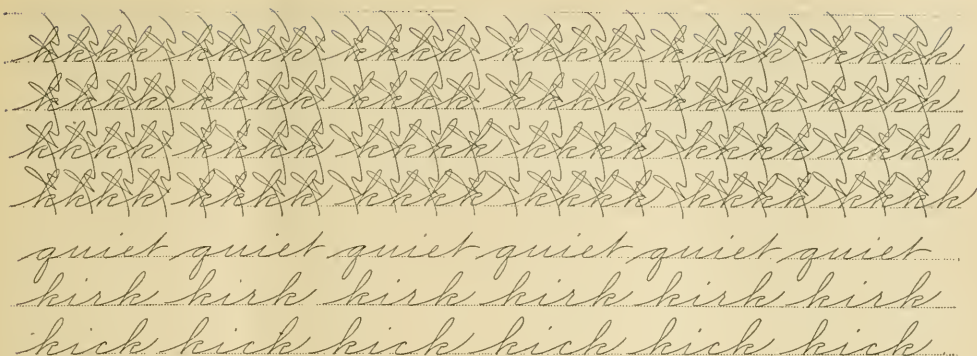 kkkk kkkk kkkk kkkk kkkk kkkk
kkkk kkkk kkkk kkkk kkkk kkkk
kkkk kkkk kkkk kkkk kkkk kkkk
kkkk kkkk kkkk kkkk kkkk kkkk
quiet quiet quiet quiet quiet quiet
kirk kirk kirk kirk kirk kirk
kick kick kick kick kick kick